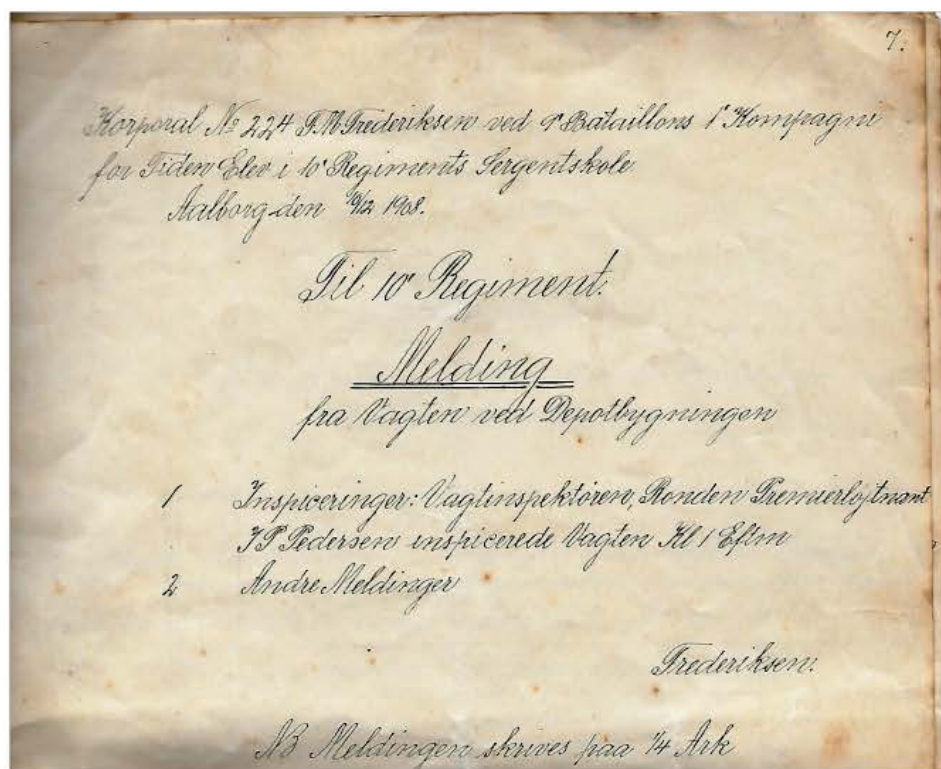 7.
Korporal No 224 F.M. Frederiksen ved 9' Bataillons 1' Kompagni
for Tiden Elev i 10' Regiments Sergentskole.
Aalborg den 1908.
Til 10' Regiment.
Melding
fra Vagten ved Depotbygningen
1 Inspiceringer: Vagtinspektøren, Ronden Premierløjtnant
Pedersen inspicerede Vagten Kl 1 Eftm
2 Andre Meldinger
Frederiksen.
NB Meldingen skrives paa 1/4 Ark